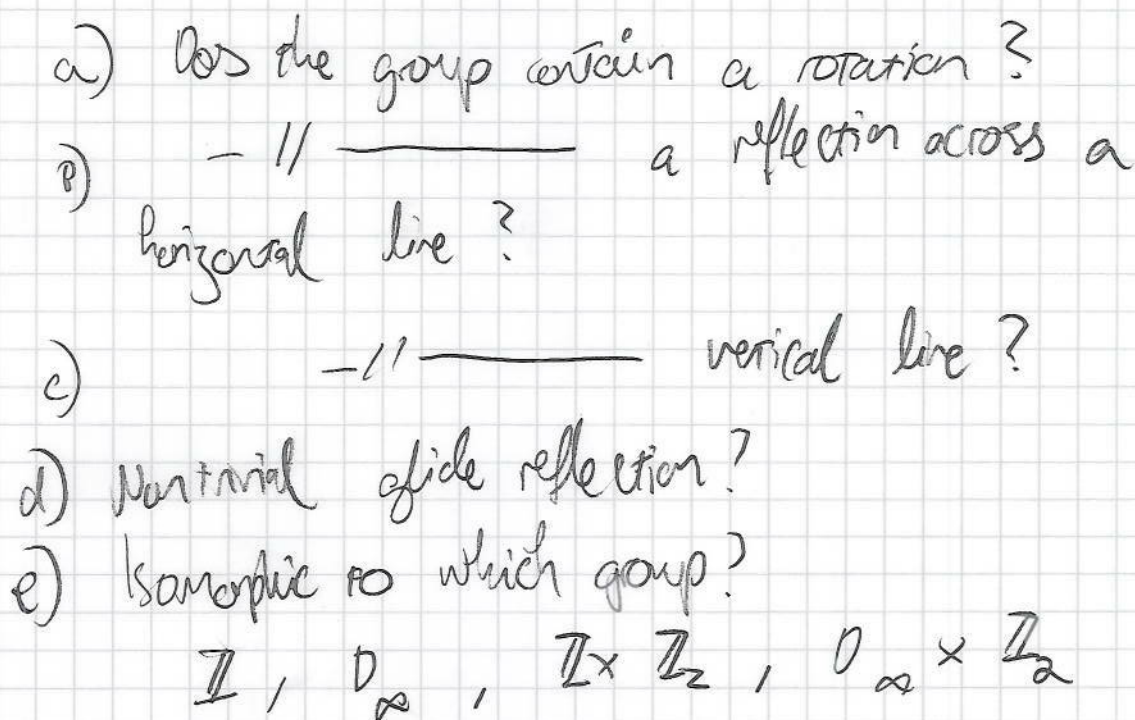 a) Does the group contain a rotation?
b) -//- a reflection across a
horizontal line?
c) -//- vertical line?
d) Nontrivial glide reflection?
e) Isomorphic to which group?
ℤ, D∞, ℤ × ℤ₂, D∞ × ℤ₂